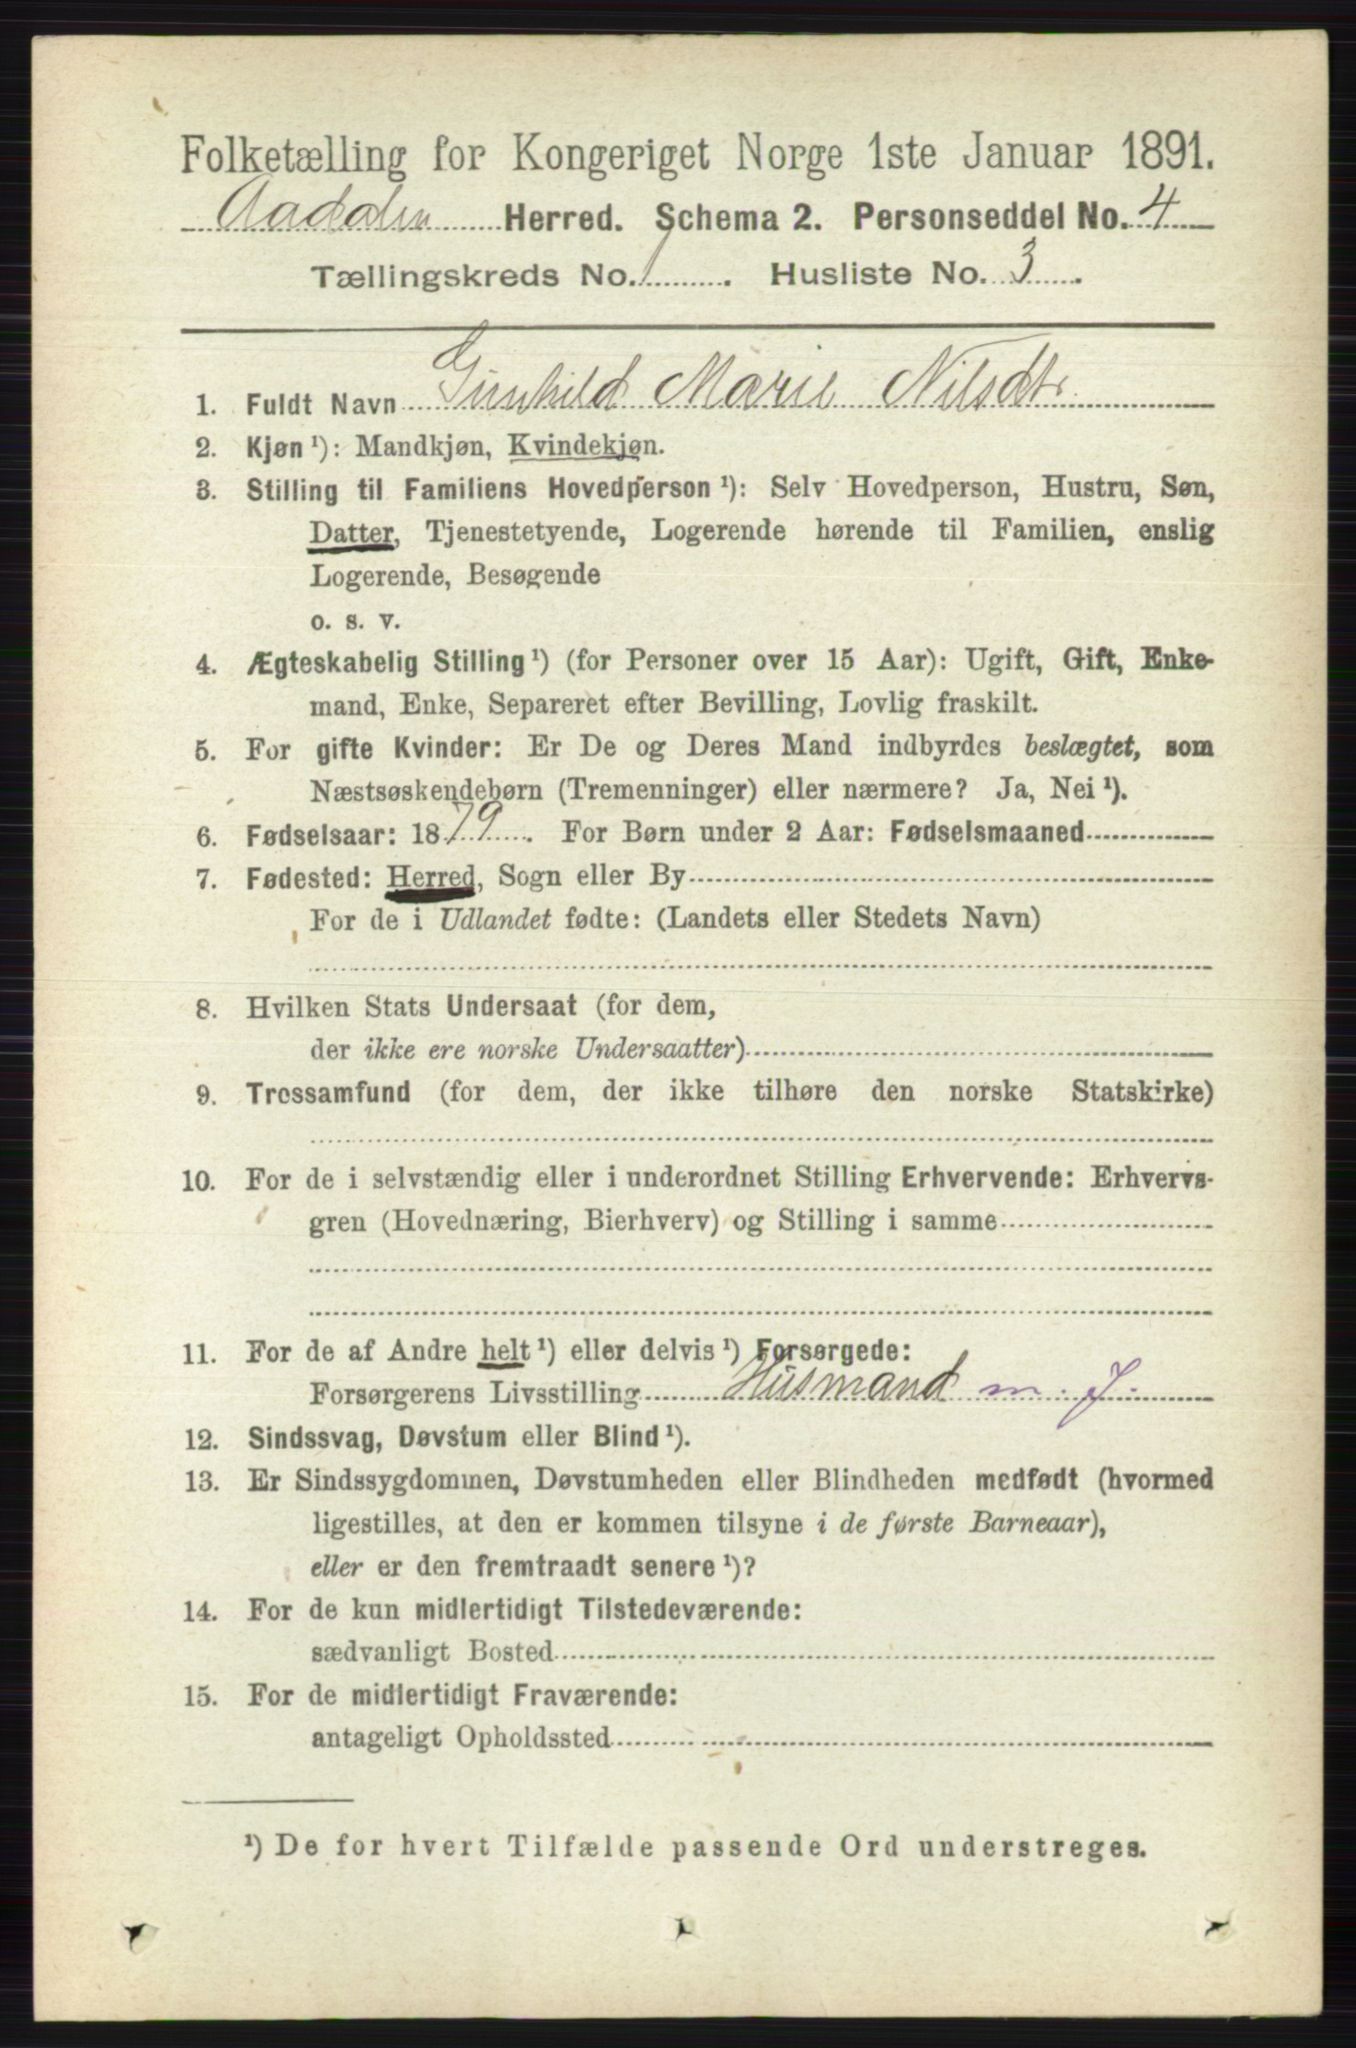 Folketælling for Kongeriget Norge 1ste Januar 1891.
Aadalen Herred. Schema 2. Personseddel No. 4
Tællingskreds No. 1. Husliste No. 3.
1. Fuldt Navn Gunhild Marie Nilsdtr
2. Kjøn ¹): Mandkjøn, Kvindekjøn.
3. Stilling til Familiens Hovedperson ¹): Selv Hovedperson, Hustru, Søn,
Datter, Tjenestetyende, Logerende hørende til Familien, enslig
Logerende, Besøgende
o. s. v.
4. Ægteskabelig Stilling ¹) (for Personer over 15 Aar): Ugift, Gift, Enke-
mand, Enke, Separeret efter Bevilling, Lovlig fraskilt.
5. For gifte Kvinder: Er De og Deres Mand indbyrdes beslægtet, som
Næstsøskendebørn (Tremenninger) eller nærmere? Ja, Nei ¹).
6. Fødselsaar: 1879. For Børn under 2 Aar: Fødselsmaaned
7. Fødested: Herred, Sogn eller By
For de i Udlandet fødte: (Landets eller Stedets Navn)
8. Hvilken Stats Undersaat (for dem,
der ikke ere norske Undersaatter)
9. Trossamfund (for dem, der ikke tilhøre den norske Statskirke)
10. For de i selvstændig eller i underordnet Stilling Erhvervende: Erhvervs-
gren (Hovednæring, Bierhverv) og Stilling i samme
11. For de af Andre helt ¹) eller delvis ¹) Forsørgede:
Forsørgerens Livsstilling Husmand m. J.
12. Sindssvag, Døvstum eller Blind ¹).
13. Er Sindssygdommen, Døvstumheden eller Blindheden medfødt (hvormed
ligestilles, at den er kommen tilsyne i de første Barneaar),
eller er den fremtraadt senere ¹)?
14. For de kun midlertidigt Tilstedeværende:
sædvanligt Bosted
15. For de midlertidigt Fraværende:
antageligt Opholdssted
¹) De for hvert Tilfælde passende Ord understreges.